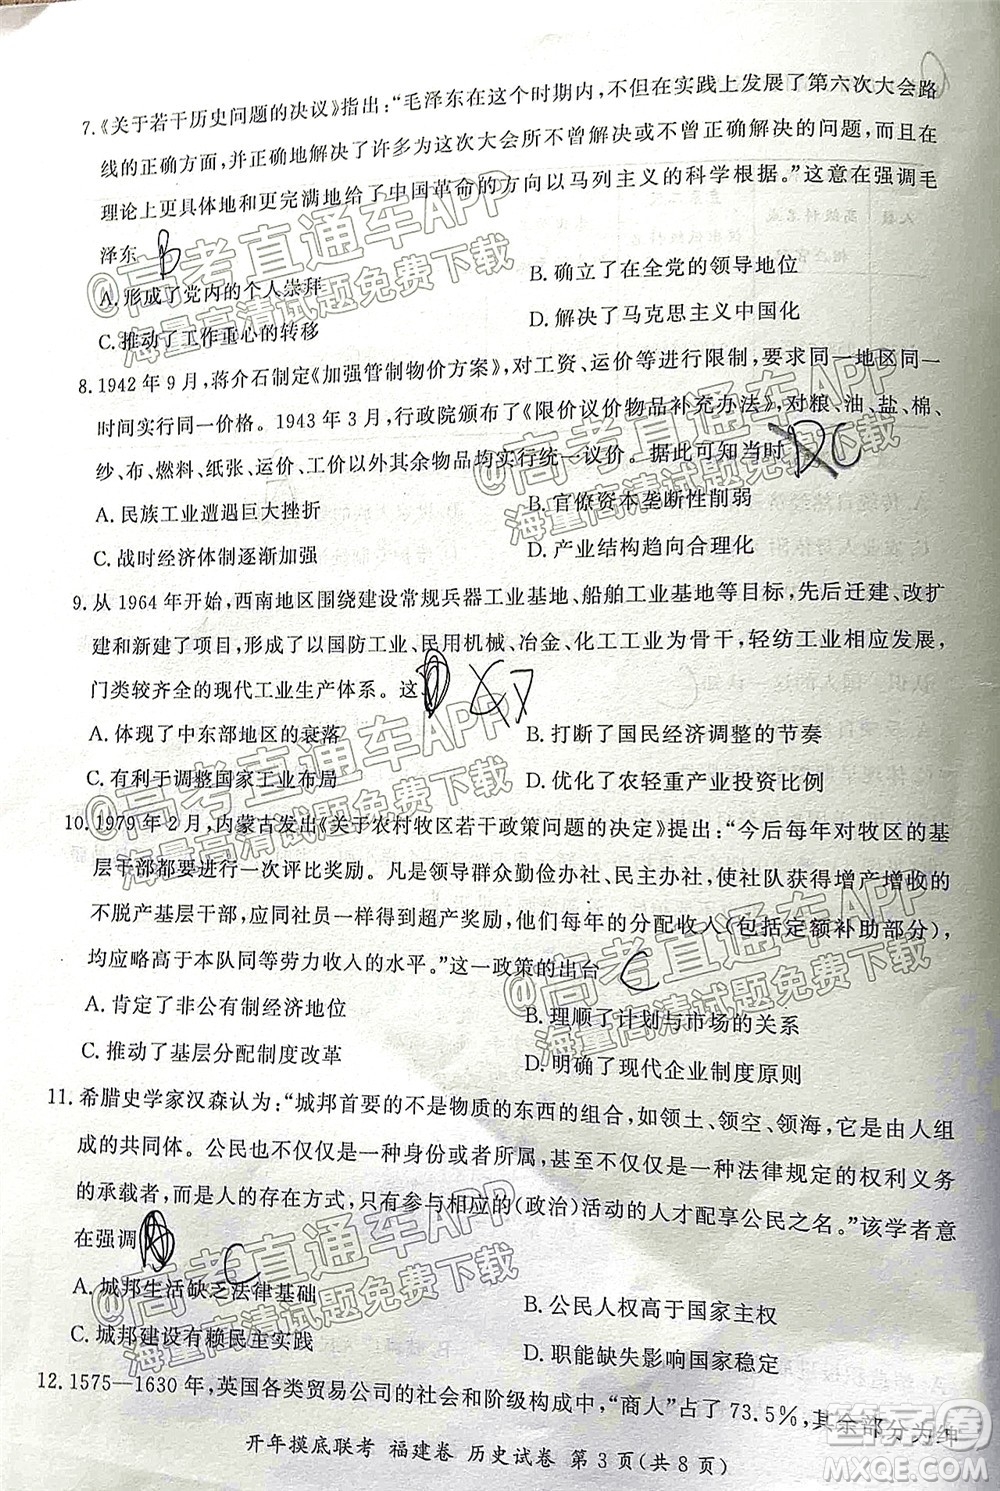 7.《关于若干历史问题的决议》指出：“毛泽东在这个时期内，不但在实践上发展了第六次大会路
线的正确方面，并正确地解决了许多为这次大会所不曾解决或不曾正确解决的问题，而且在
理论上更具体地和更完满地给了中国革命的方向以马列主义的科学根据。”这意在强调毛
泽东 B
A.形成了党内的个人崇拜
B.确立了在全党的领导地位
C.推动了工作重心的转移
D.解决了马克思主义中国化
8.1942年9月，蒋介石制定《加强管制物价方案》，对工资、运价等进行限制，要求同一地区同一
时间实行同一价格。1943年3月，行政院颁布了《限价议价物品补充办法》，对粮、油、盐、棉、
纱、布、燃料、纸张、运价、工价以外其余物品均实行统一议价。据此可知当时 C
A.民族工业遭遇巨大挫折
B.官僚资本垄断性削弱
C.战时经济体制逐渐加强
D.产业结构趋向合理化
9.从1964年开始，西南地区围绕建设常规兵器工业基地、船舶工业基地等，先后迁建、改扩
建和新建了项目，形成了以国防工业、民用机械、冶金、化工工业为骨干，轻纺工业相应发展，
门类较齐全的现代工业生产体系。这
A.体现了中东部地区的衰落
B.打断了国民经济调整的节奏
C.有利于调整国家工业布局
D.优化了农轻重产业投资比例
10.1979年2月，内蒙古发出《关于农村牧区若干政策问题的决定》提出：“今后每年对牧区的基
层干部都要进行一次评比奖励。凡是领导群众勤俭办社、民主办社，使社队获得增产增收的
不脱产基层干部，应同社员一样得到超产奖励，他们每年的分配收入（包括定额补助部分），
均应略高于本队同等劳力收入的水平。”这一政策的出台 C
A.肯定了非公有制经济地位
B.理顺了计划与市场的关系
C.推动了基层分配制度改革
D.明确了现代企业制度原则
11.希腊史学家汉森认为：“城邦首要的不是物质的东西的组合，如领土、领空、领海，而是由人组
成的共同体。公民也不仅仅是一种身份或者所属，甚至不仅仅是一种法律规定的权利义务
的承载者，而是人的存在方式，只有参与相应的（政治）活动的人才配享公民之名。”该学者意
在强调 C
A.城邦生活缺乏法律基础
B.公民人权高于国家主权
C.城邦建设有赖民主实践
D.职能缺失影响国家稳定
12.1575—1630年，英国各类贸易公司的社会和阶级构成中，“商人”占了73.5%，其余部分为绅
开年摸底联考 福建卷 历史试卷 第3页（共8页）
@高考直通车APP
海量高清试题免费下载
@高考直通车APP
海量高清试题免费下载
@高考直通车APP
海量高清试题免费下载
@高考直通车APP
海量高清试题免费下载
@高考直通车APP
海量高清试题免费下载
答案圈
MXQE.COM